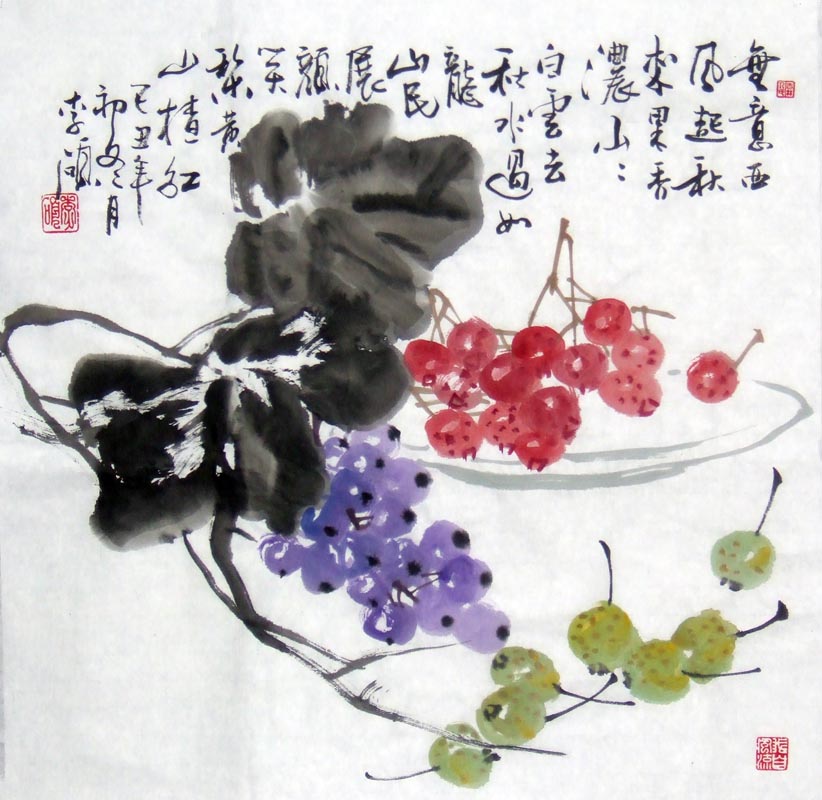 無意西
風起秋
來果香
濃山〻
白雲去
秋水過如
龍
山民
展
顏
笑
梨黄
山楂红
己丑年
初冬月
李